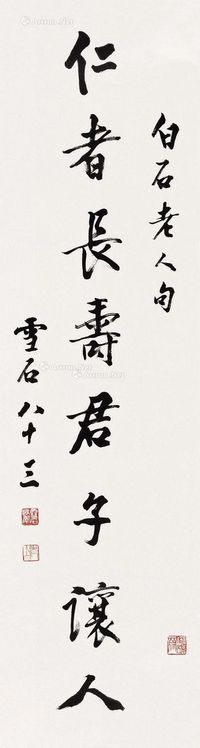 白石老人句
仁者長壽君子讓人
雪石八十三